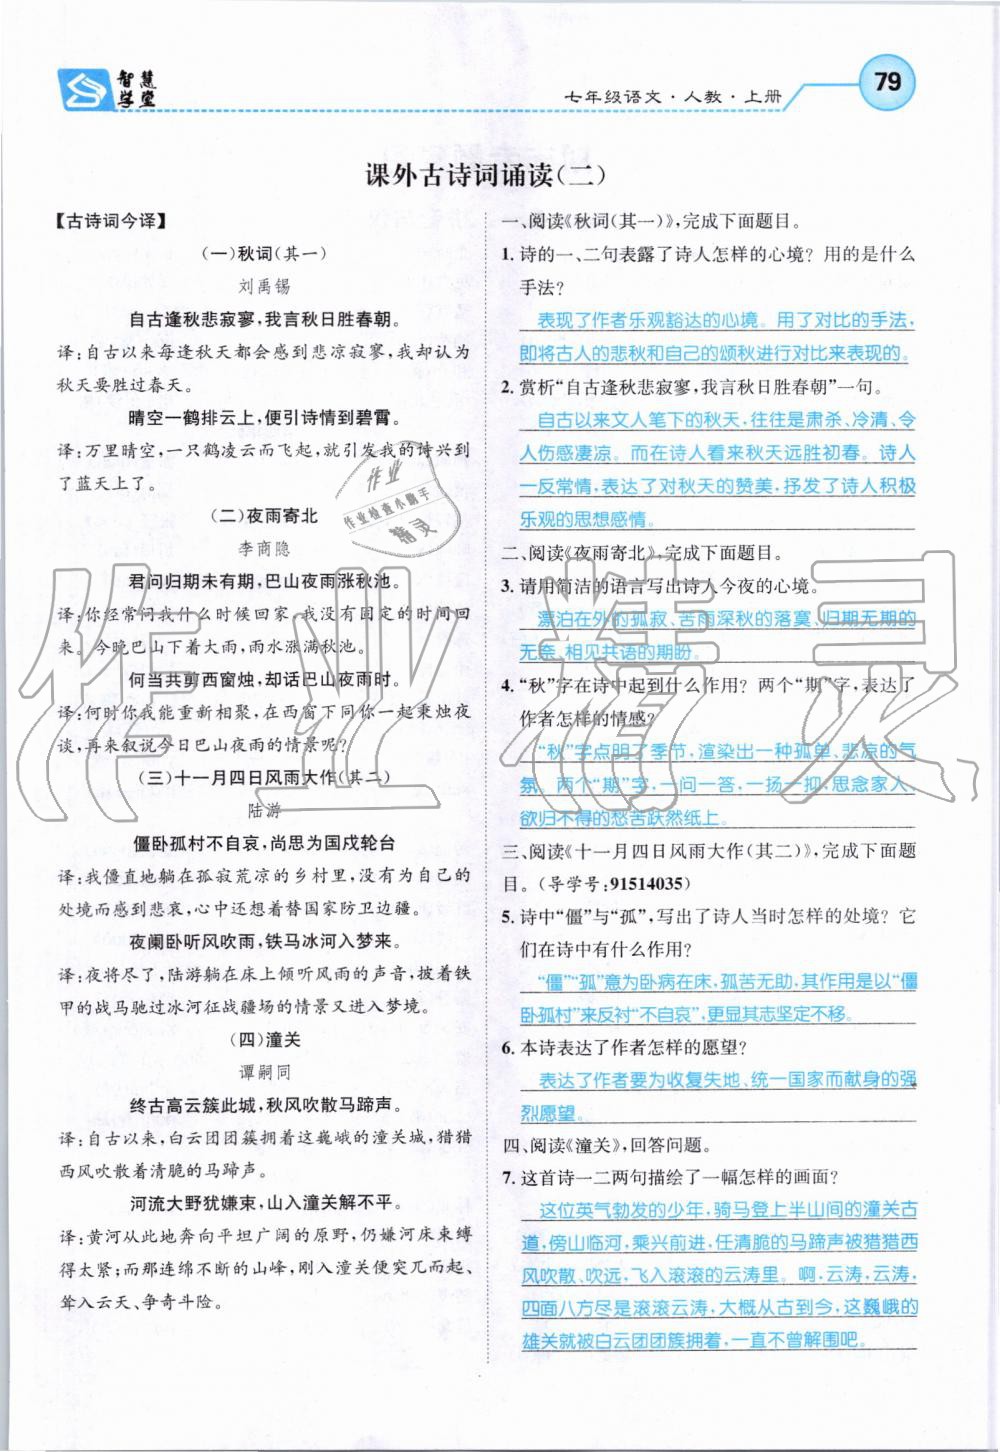 智慧
学堂
七年级语文·人教·上册
79
课外古诗词诵读(二)
【古诗词今译】
(一)秋词(其一)
刘禹锡
自古逢秋悲寂寥,我言秋日胜春朝。
译:自古以来每逢秋天都会感到悲凉寂寥,我却认为
秋天要胜过春天。
晴空一鹤排云上,便引诗情到碧霄。
译:万里晴空,一只鹤凌云而飞起,就引发我的诗兴到
了蓝天上了。
(二)夜雨寄北
李商隐
君问归期未有期,巴山夜雨涨秋池。
译:你经常问我什么时候回家,我没有固定的时间回
来。今晚巴山下着大雨,雨水涨满秋池。
何当共剪西窗烛,却话巴山夜雨时。
译:何时你我能重新相聚,在西窗下同你一起秉烛夜
谈,再来叙说今日巴山夜雨的情景呢?
(三)十一月四日风雨大作(其二)
陆游
僵卧孤村不自哀,尚思为国戍轮台
译:我僵直地躺在孤寂荒凉的乡村里,没有为自己的
处境而感到悲哀,心中还想着替国家防卫边疆。
夜阑卧听风吹雨,铁马冰河入梦来。
译:夜将尽了,陆游躺在床上倾听风雨的声音,披着铁
甲的战马驰过冰河征战疆场的情景又进入梦境。
(四)潼关
谭嗣同
终古高云簇此城,秋风吹散马蹄声。
译:自古以来,白云团团簇拥着这巍峨的潼关城,猎猎
西风吹散着清脆的马蹄声。
河流大野犹嫌束,山入潼关解不平。
译:黄河从此地奔向平坦广阔的原野,仍嫌河床束缚
得太紧;而那连绵不断的山峰,刚入潼关便突兀而起、
耸入云天、争奇斗险。
一、阅读《秋词(其一)》,完成下面题目。
1. 诗的一、二句表露了诗人怎样的心境?用的是什么
手法?
表现了作者乐观豁达的心境。用了对比的手法,
即将古人的悲秋和自己的颂秋进行对比来表现的。
2. 赏析“自古逢秋悲寂寥,我言秋日胜春朝”一句。
自古以来文人笔下的秋天,往往是肃杀、冷清、令
人伤感凄凉。而在诗人看来秋天远胜初春。诗人
一反常情,表达了对秋天的赞美,抒发了诗人积极
乐观的思想感情。
二、阅读《夜雨寄北》,完成下面题目。
3. 请用简洁的语言写出诗人今夜的心境。
漂泊在外的孤寂、苦雨深秋的落寞、归期无期的
无奈、相见共语的期盼。
4. “秋”字在诗中起到什么作用?两个“期”字,表达了
作者怎样的情感?
“秋”字点明了季节,渲染出一种孤单、悲凉的气
氛。两个“期”字,一问一答,一扬一抑,思念家人、
欲归不得的愁苦跃然纸上。
三、阅读《十一月四日风雨大作(其二)》,完成下面题
目。(导学号:91514035)
5. 诗中“僵”与“孤”,写出了诗人当时怎样的处境?它
们在诗中有什么作用?
“僵”“孤”意为卧病在床,孤苦无助,其作用是以“僵
卧孤村”来反衬“不自哀”,更显其志坚定不移。
6. 本诗表达了作者怎样的愿望?
表达了作者要为收复失地、统一国家而献身的强
烈愿望。
四、阅读《潼关》,回答问题。
7. 这首诗一二两句描绘了一幅怎样的画面?
这位英气勃发的少年,骑马登上半山间的潼关古
道,傍山临河,乘兴前进,任清脆的马蹄声被猎猎西
风吹散、吹远,飞入滚滚的云涛里。啊,云涛,云涛,
四面八方尽是滚滚云涛,大概从古到今,这巍峨的
雄关就被白云团团簇拥着,一直不曾解围吧。
作业
作业检查小助手
精灵
作业精灵